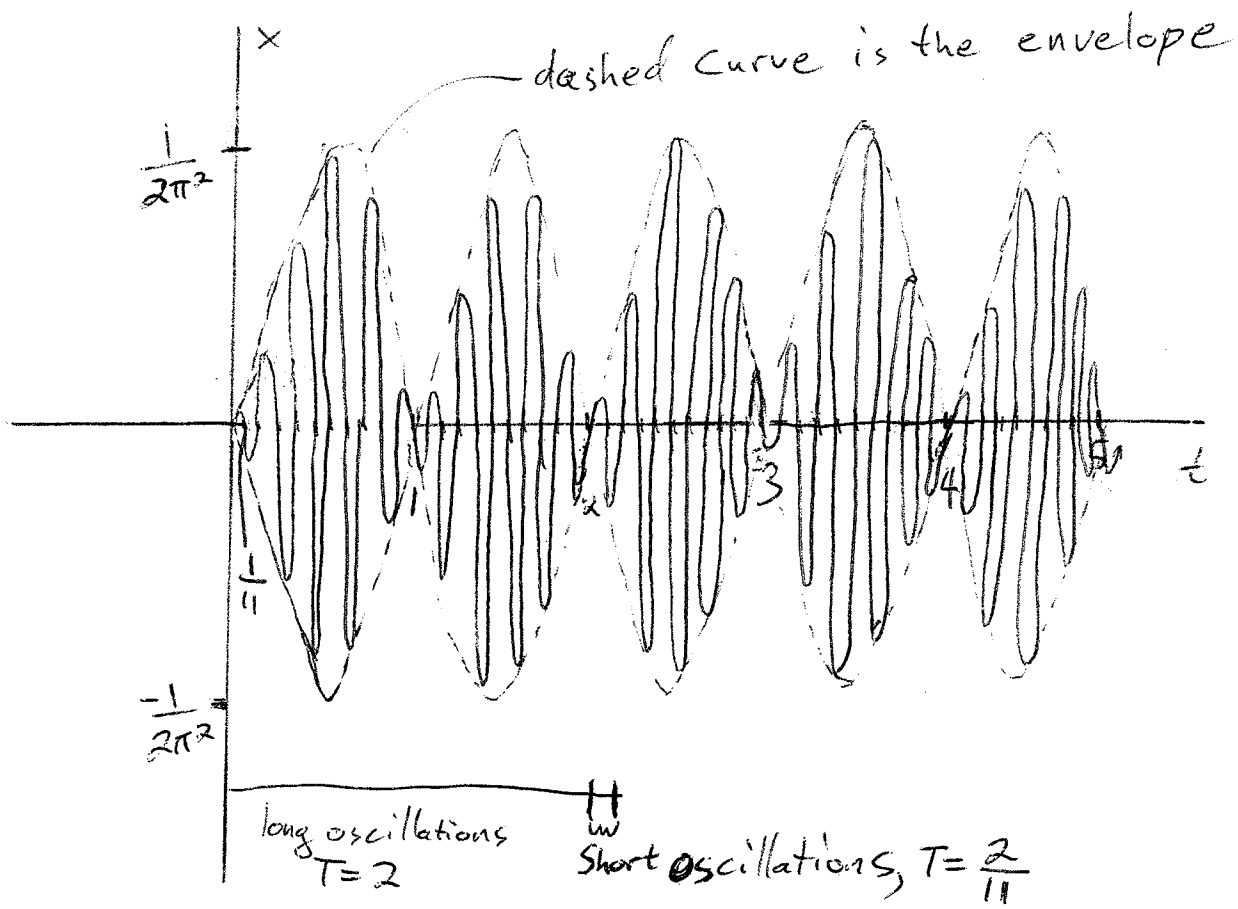 x
dashed curve is the envelope
1/2π²
1 2 3 4 5
t
1/11
-1/2π²
long oscillations
T=2
Short oscillations, T=2/11